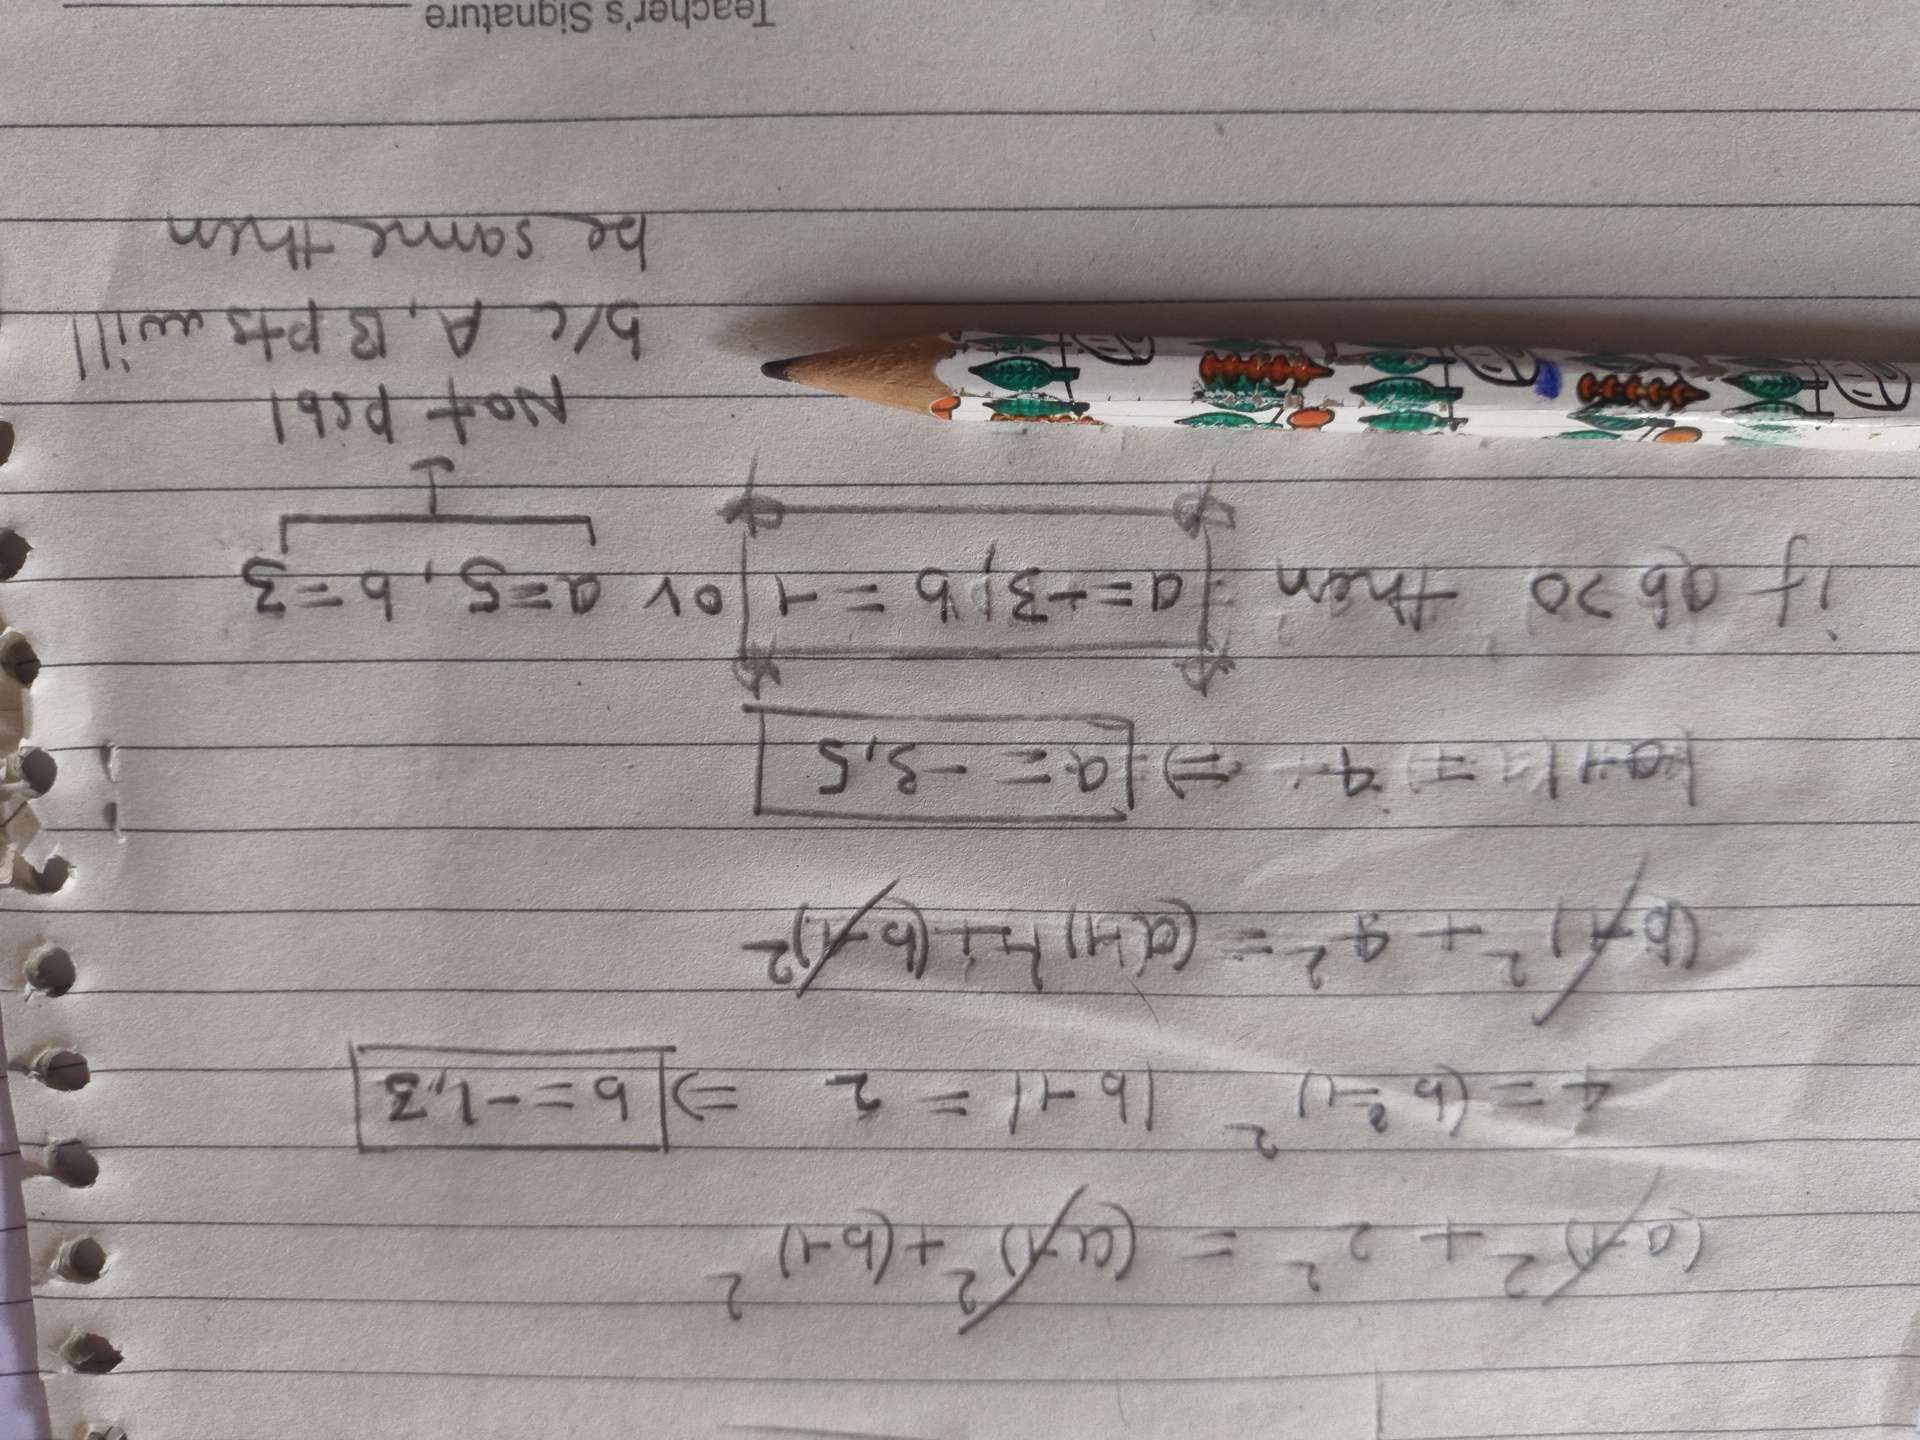 (a-1)² + 2² = (a-1)² + (b-1)²
4 = (b-1)² |b-1| = 2 ⇒ b = -1, 3
(b-1)² + 4² = (a-1)² + (b-1)²
|a-1| = 4 ⇒ a = -3, 5
if ab>0 then a=-3, b = -1 or a=5, b=3
Not psbl
b/c A, B pts will
be same then
Teacher's Signature